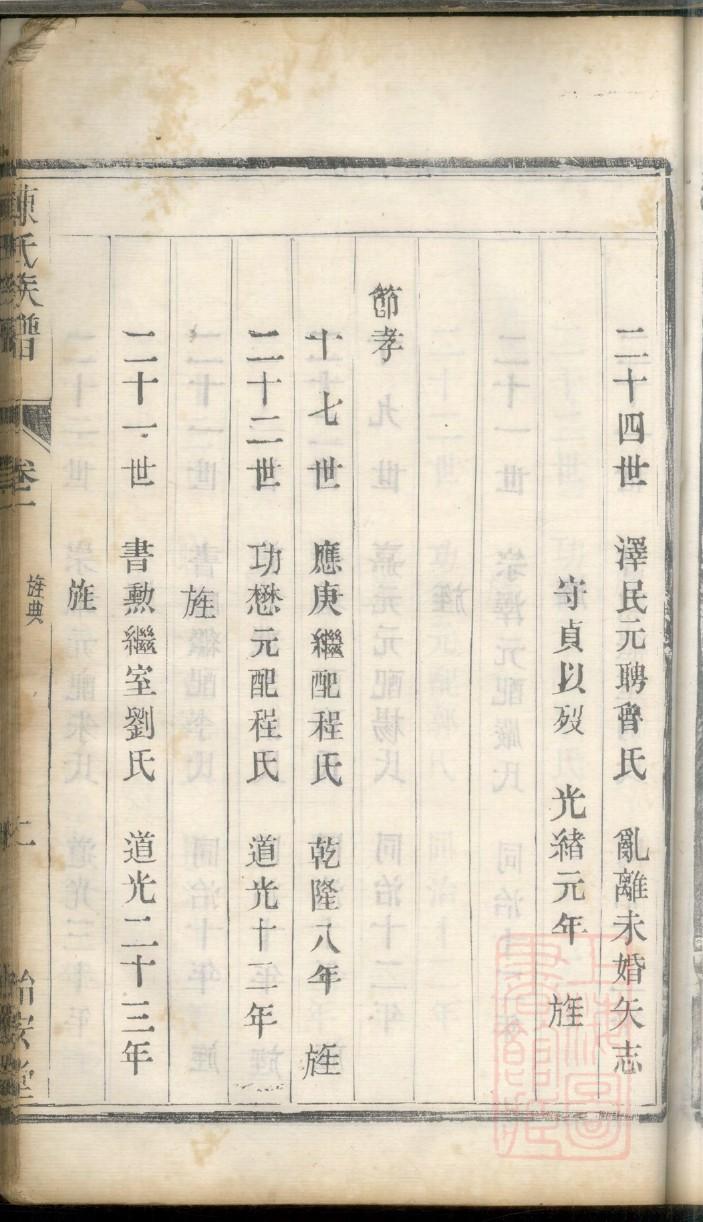 二十四世 澤民元聘魯氏 亂離未婚矢志
守貞以歿 光緒元年 旌
節孝
十七世 應庚繼配程氏 乾隆八年 旌
二十二世 功懋元配程氏 道光十三年
旌
二十一世 書勲繼室劉氏 道光二十三年
旌
陳氏族譜 卷一 旌典 二